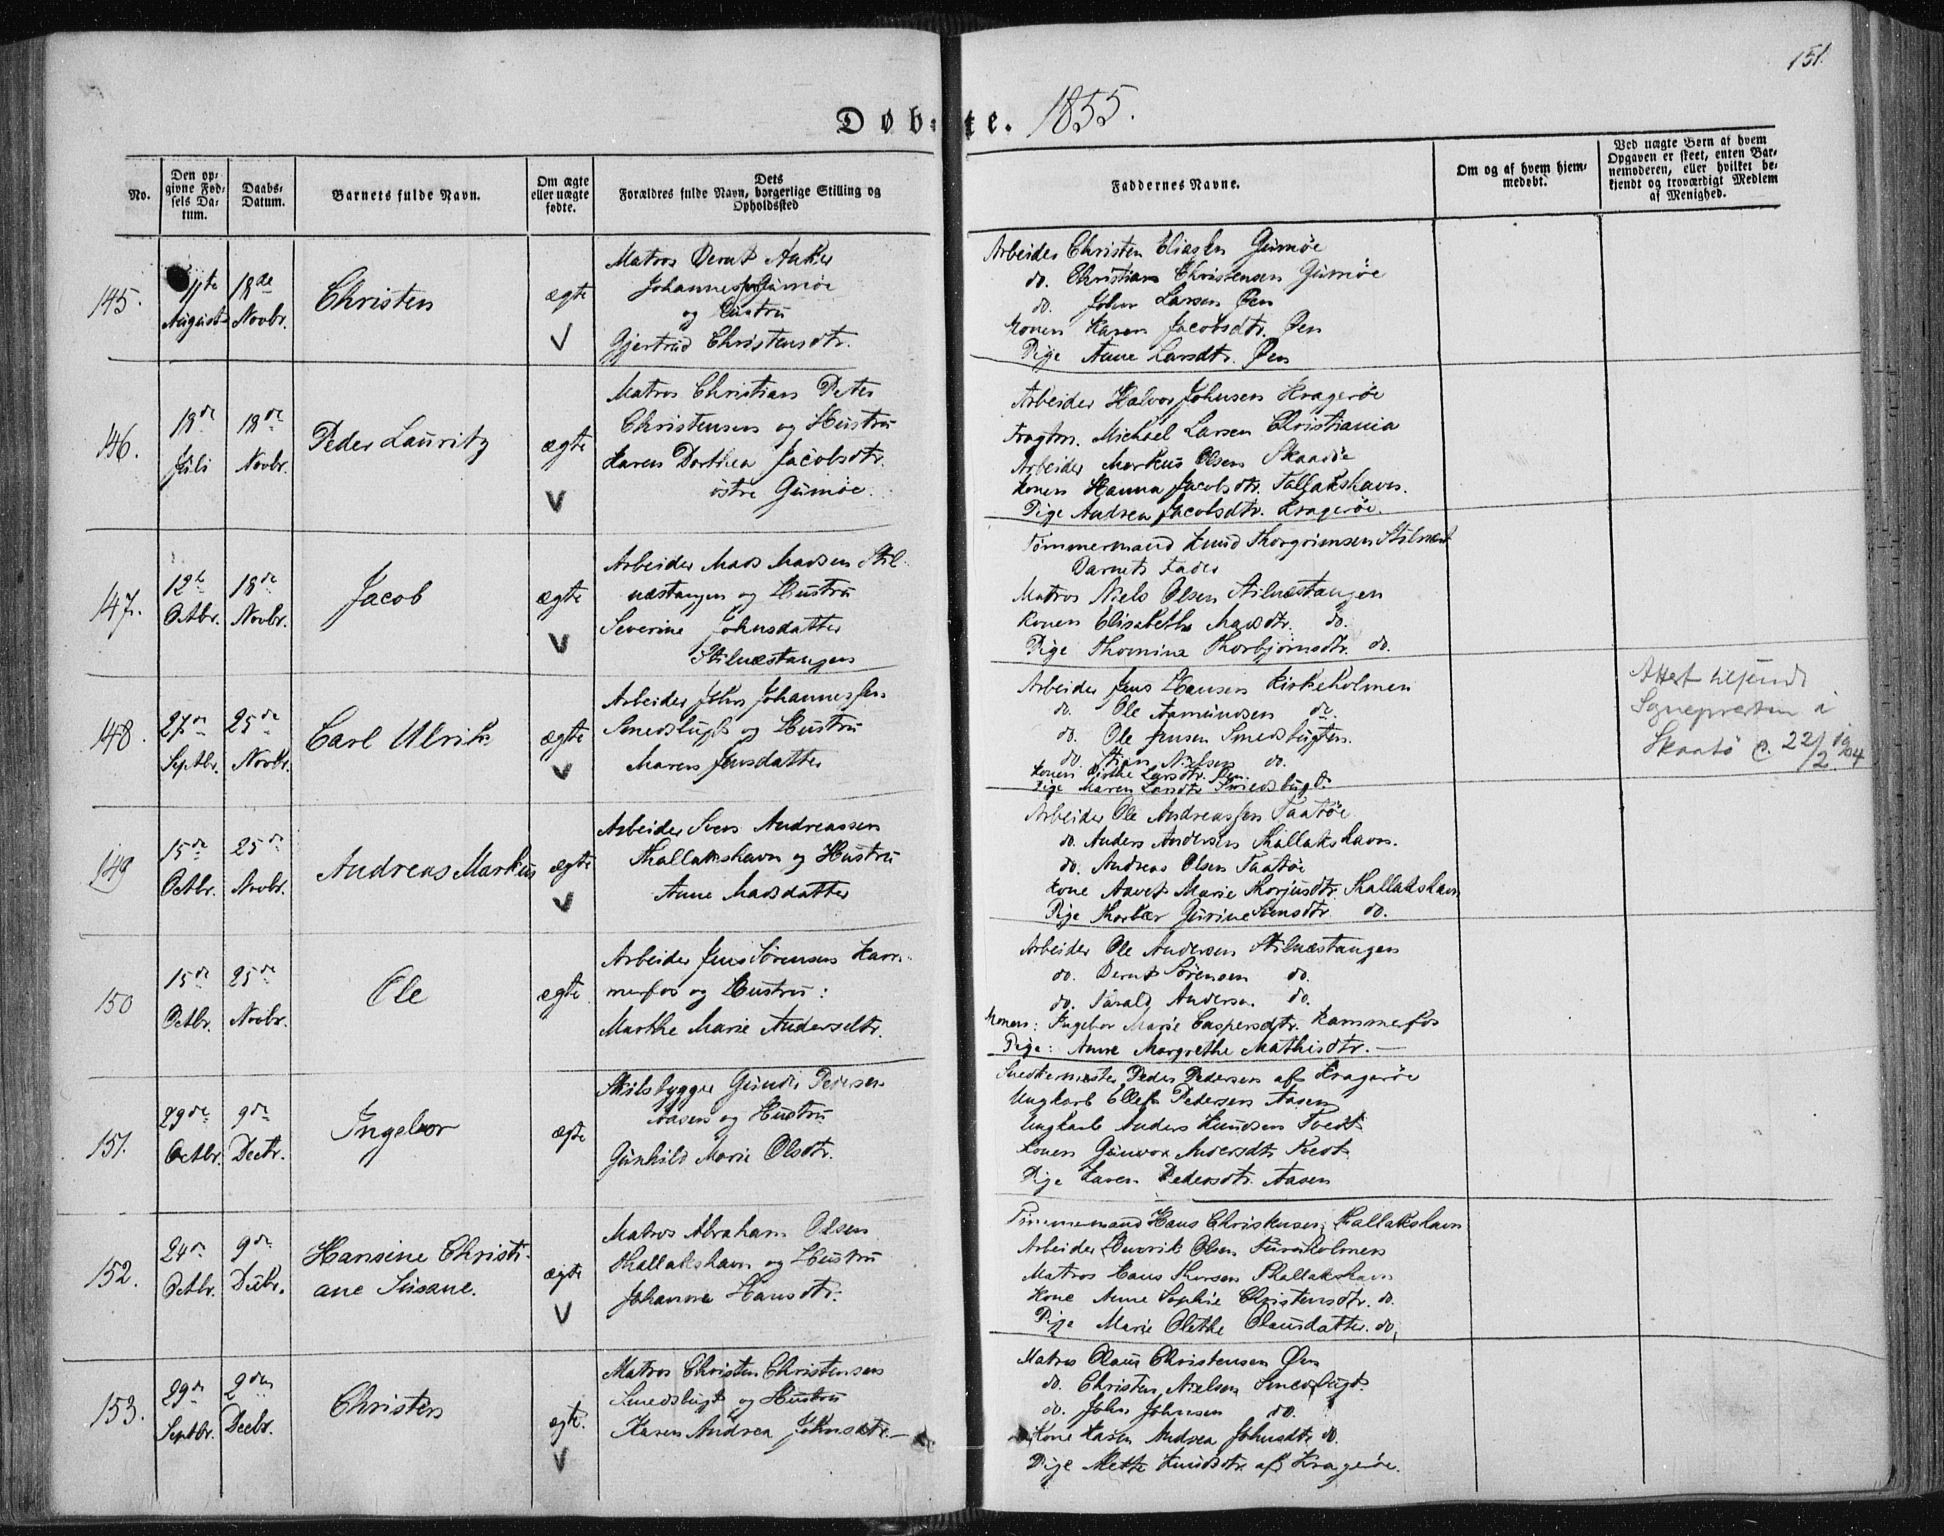 151.
Døbte. 1855.
No.
Den op-
givne Fød-
sels Da-
tum.
Daabs-
Datum.
Barnets fulde Navn.
Om ægte
eller uægte
fødte.
Dets
Forældres fulde Navn, borgerlige Stilling og
Opholdssted
Faddernes Navne.
Om og af hvem hjem-
medøbt.
Ved uægte Børn af hvem
Opgaven er skeet, enten Bar-
nemoderen, eller hvilket be-
kjendt og troværdigt Medlem
af Menighed.
145.
11te
August
18de
Novbr.
Christen
ægte
V
Matros Bernt Anker
Johannessen Gumöe
og Hustru
Gjertrud Christensdtr.
Arbeider Christen Eliassen Gumöe
do. Christian Christensen Gumöe
do. John Larsen Öen
Konen Karen Jacobsdtr. Öen
Pige Anne Larsdtr. Öen
146.
18de
Juli
18de
Novbr.
Peder Lauritz
ægte
V
Matros Christian Peter
Christensen og Hustru
Karen Dorthea Jacobsdtr.
östre Gumöe.
Arbeider Halvor Johnsen Krageröe
Fragtm. Michael Larsen Christiania
Arbeider Markus Olsen Skaadöe
Konen Hanna Jacobsdtr. Tallakshavn.
Pige Andrea Jacobsdtr. Krageröe.
147.
12te
Octbr.
18de
Novbr.
Jacob
ægte
V
Arbeider Mads Madsen Stil-
næstangen og Hustru
Severine Johnsdatter
Stilnæstangen
Tömmermand Knud Thorgrimsen Stilnæst
Barnets Fader
Matros Niels Olsen Stilnæstangen
Konen Elisabeth Madsdtr. do.
Pige Thomine Thorbjörnsdtr. do.
148.
27de
Septbr.
25de
Novbr.
Carl Ulrik
ægte
V
Arbeider John Johannessen
Smedsbugt og Hustru
Maren Jensdatter
Arbeider Jens Hansen Kirkeholmen
do. Ole Aamundsen do.
do. Ole Jensen Smedsbugten.
do. Stian Nielsen do.
Konen Birthe Larsdtr. Öen
Pige Maren Larsdtr. Smedsbugt.
Attest tilsendt
Sognepresten i
Skaatö d. 22/2 1904
149
15de
Octbr.
25de
Novbr.
Andreas Markus
ægte
V
Arbeider Sven Andreassen
Thallakshavn og Hustru
Anne Madsdatter
Arbeider Ole Andreassen Taatöe
do. Anders Andersen Thallakshavn.
do. Andreas Olsen Taatöe
Kone Aaset Marie Thorjusdtr. Thallakshavn
Pige Thorbær Gurine Svensdtr. do.
150
15de
Octbr.
25de
Novbr.
Ole
ægte
Arbeider Jens Sörensen Kam-
merfos og Hustru:
Marthe Marie Andersdtr.
Arbeider Ole Andersen Stilnæstangen
do. Bernt Sörensen do.
do. Tarald Andersen do.
Konen: Ingebor Marie Caspersdtr. Kammerfos
Pige: Anne Margrethe Mathisdtr. —
151.
29de
Octbr.
9de
Decbr.
Ingebor
ægte
Skibsbygger Gunder Pedersen
Aasen og Hustru
Gunhild Marie Olsdtr.
Snedkermester Peder Pedersen af Kragerøe
Ungkarl Ellef Pedersen Aasen
Ungkarl Anders Knudsen Tvedt
Konen Gunvor Andersdtr Tvedt
Pige Karen Pedersdtr. Aasen
152.
24de
Octbr.
9de
Decbr.
Hansine Christi-
ane Susane.
ægte
V
Matros Abraham Olsen
Thallakshavn og Hustru
Johanne Hansdtr.
Tömmermand Hans Christensen Thallakshavn
Arbeider Henrik Olsen Furuholmen
Matros Hans Thorsen Thallakshavn
Kone Anne Sophie Christensdtr. do.
Pige Marie Olethe Olausdatter. do,
153.
29de
Septbr.
2den
Decbr.
Christen
egte.
V
Matros Christen Christensen
Smedsbugt og Hustru
Karen Andrea Johnsdtr. —
Matros Olaus Christensen Öen
do. Christen Nielsen Smedsbugt.
do. John Johnsen do.
Kone Karen Andrea Johnsdtr do.
Pige Mette Knudsdtr. af Kragerøe.